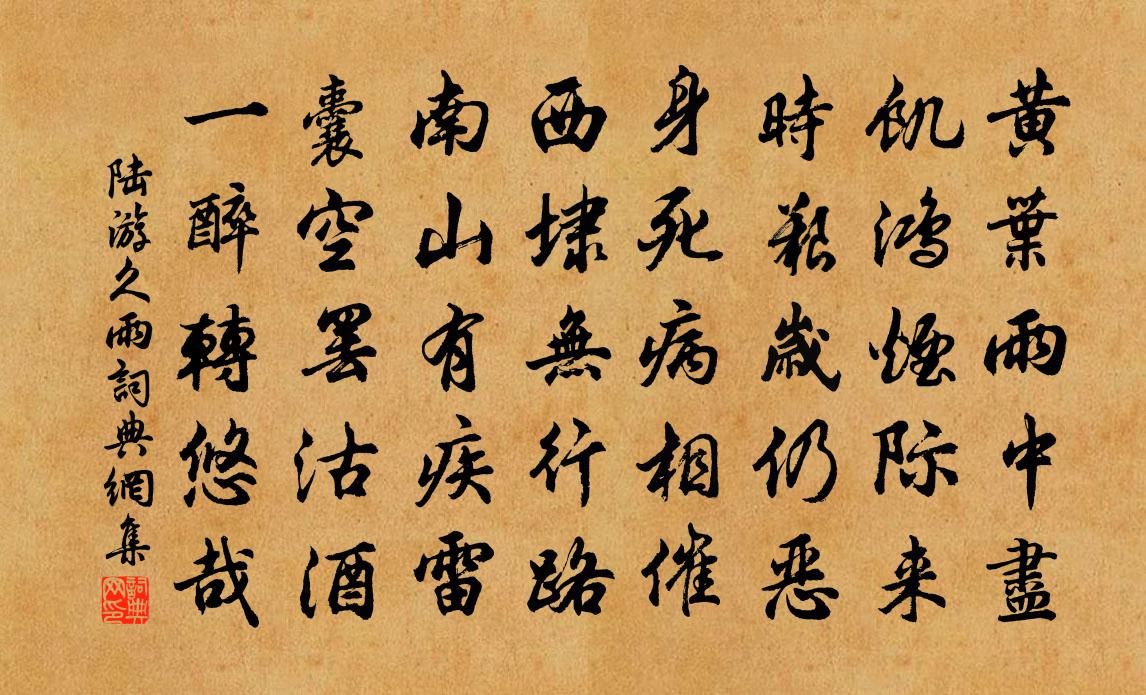 黃葉雨中盡
飢鴻煙际来
時艱歲仍惡
身死病相催
西埭無行路
南山有疾雷
囊空罢沽酒
一醉轉悠哉
陆游久雨詞典網集
詞典网印